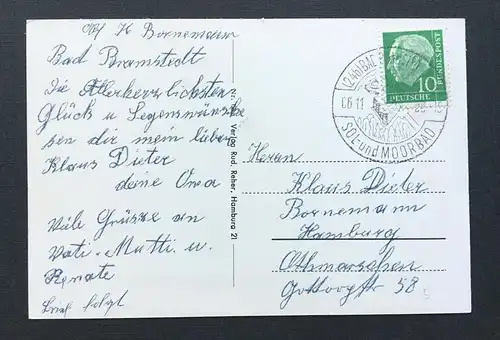 Abs K Bornemann
Bad Bramstedt
die Allerherzlichsten
Glück u Segenswünsche
sen dir mein lieber
Klaus Dieter
deine Oma
Viele Grüsse an
Vati. Mutti. u.
Renate
Brief folgt
Verlag Rud. Reber, Hamburg 21
SOL- und MOORBAD
10
DEUTSCHE
BUNDESPOST
Herrn
Klaus Dieter
Bornemann
Hamburg
Othmarschen
58